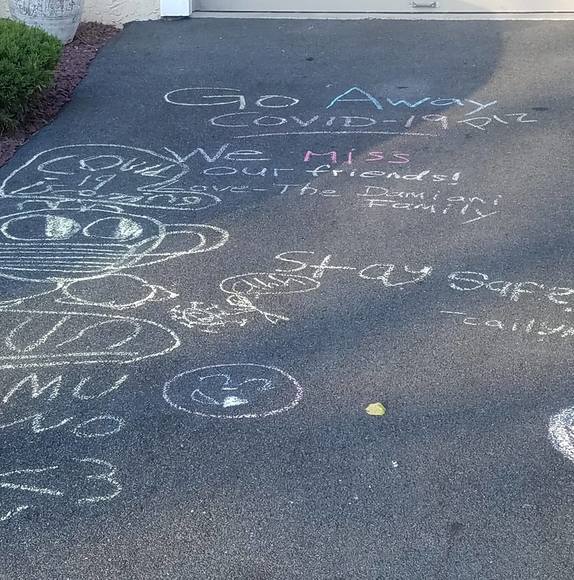 Go Away
COVID-19 plz
We Miss
our friends!
Love-The Damiani
Family
COVID
19
Stay Safe
MU
NO